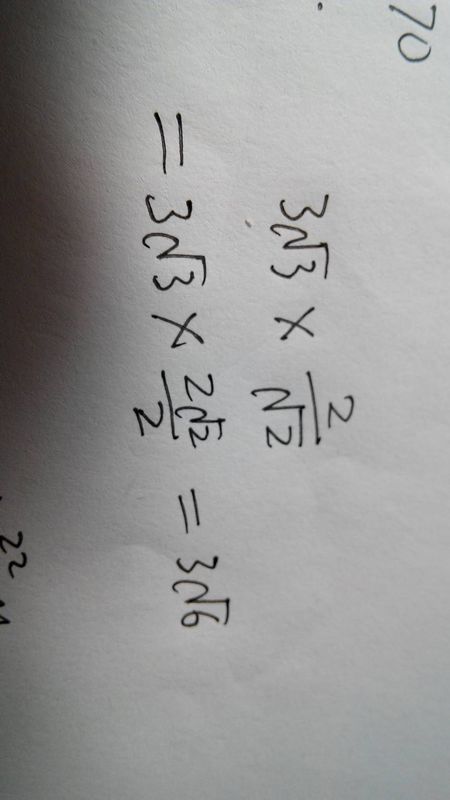 70
3√3 × 2/√2
= 3√3 × 2√2/2 = 3√6
2²